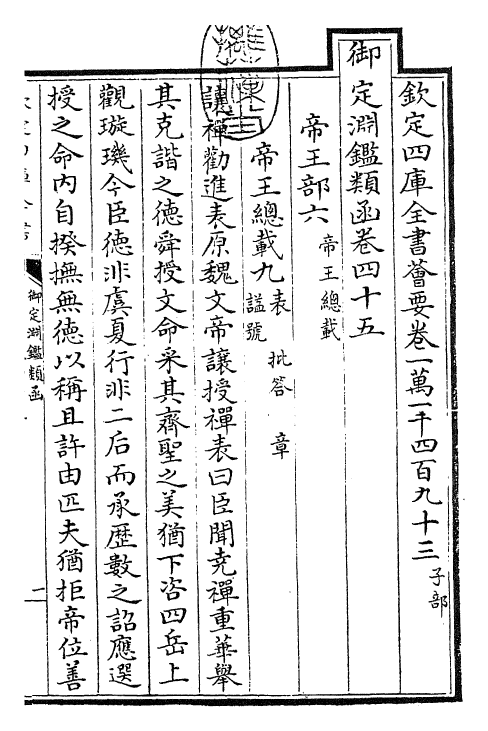 欽定四庫全書薈要卷一萬一千四百九十三子部
御定淵鑑類函卷四十五
帝王部六帝王總載
帝王總載九表 批答 章 謚號
讓禪勸進表原魏文帝讓授禪表曰臣聞堯禪重華舉
其克諧之德舜授文命采其齊聖之美猶下咨四岳上
觀璇璣今臣德非虞夏行非二后而承歷數之詔應選
授之命內自揆撫無德以稱且許由匹夫猶拒帝位善
御定淵鑑類函